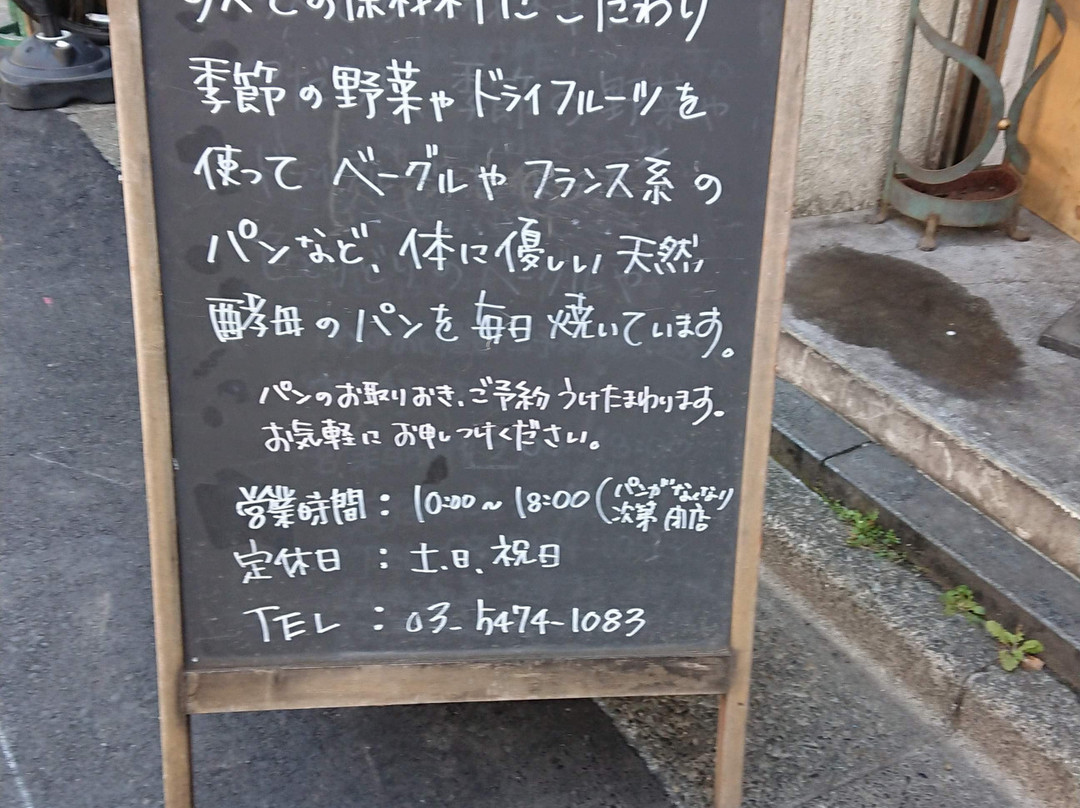 すべての原材料にこだわり
季節の野菜やドライフルーツを
使ってベーグルやフランス系の
パンなど、体に優しい天然
酵母のパンを毎日焼いています。
パンのお取りおき、ご予約うけたまわります。
お気軽にお申しつけください。
営業時間：10:00～18:00(パンがなくなり
次第閉店
定休日：土、日、祝日
TEL：03-5474-1083